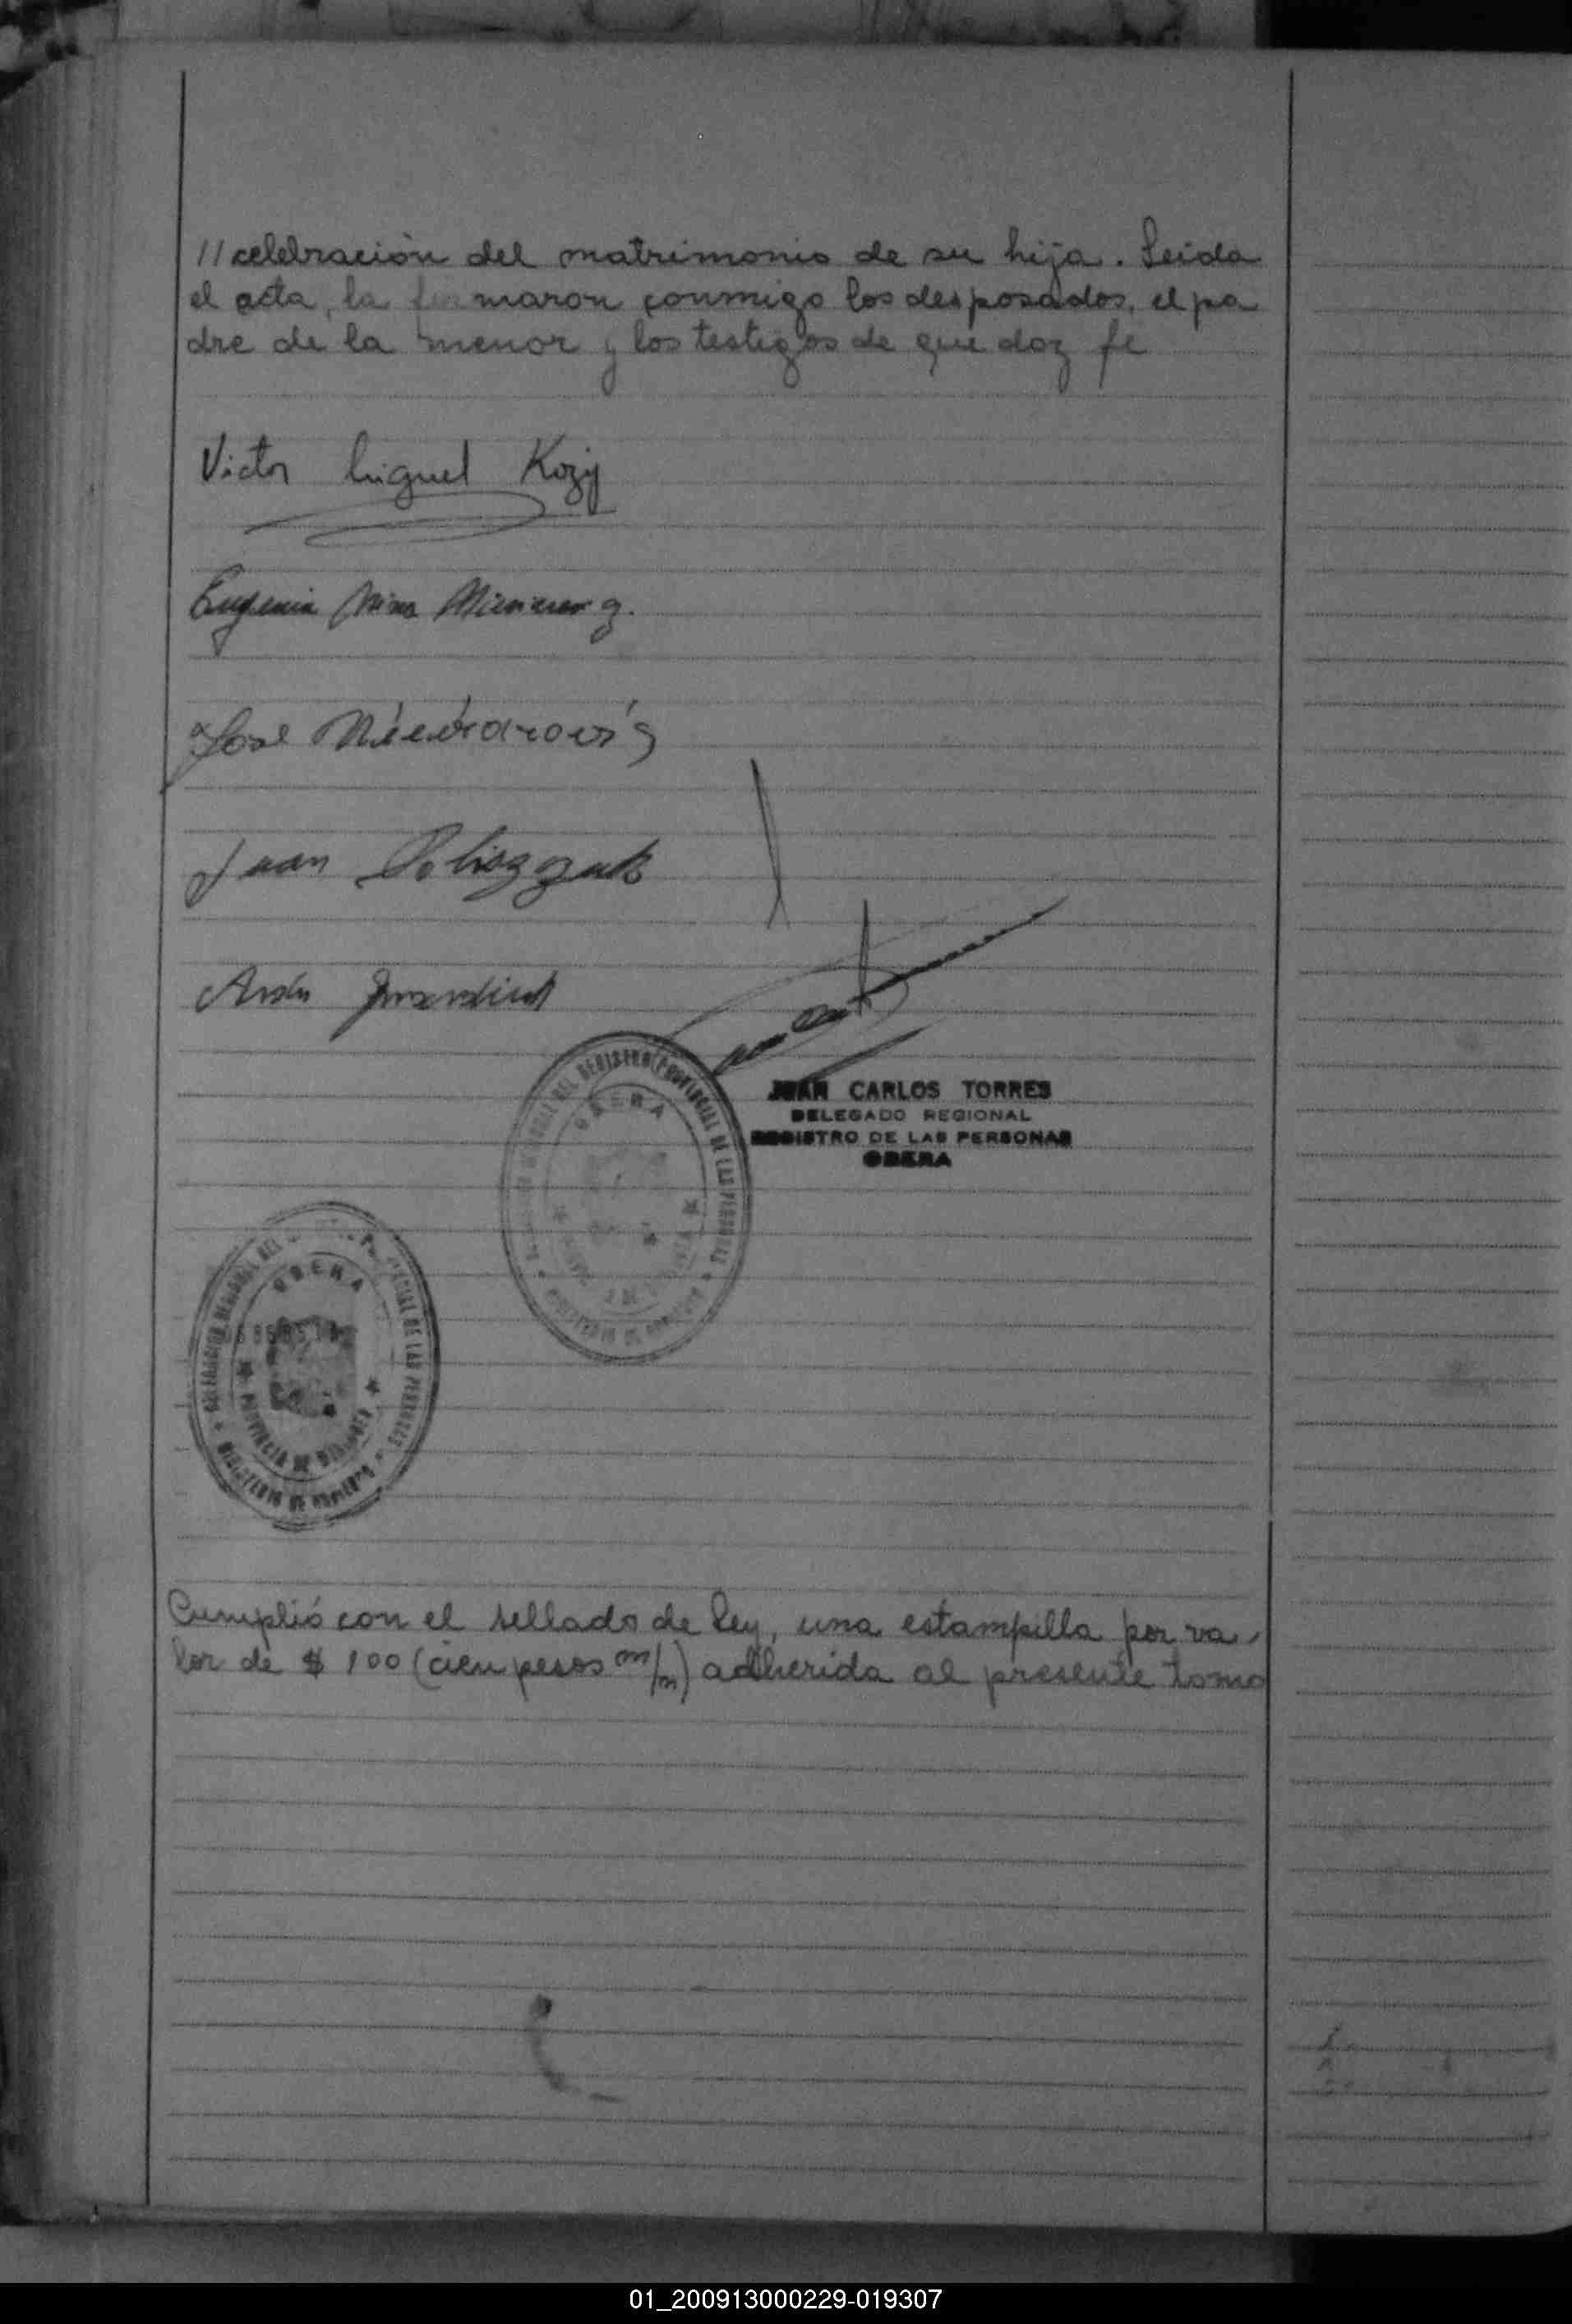 //celebración del matrimonio de su hija. Leida
el acta, la firmaron conmigo los desposados, el pa
dre de la menor y los testigos de que doy fe
Victor Miguel Kozij
Eugenia Nina
José
Juan Poliszczuk
JUAN CARLOS TORRES
DELEGADO REGIONAL
REGISTRO DE LAS PERSONAS
OBERA
DEL REGISTRO PROVINCIAL DE LAS PERSONAS
OBERA
MINISTERIO DE GOBIERNO
DELEGACION REGIONAL DEL PROVINCIAL DE LAS PERSONAS
OBERA
PROVINCIA DE MISIONES
MINISTERIO DE GOBIERNO
Cumplió con el sellado de Ley, una estampilla por va-
lor de $ 100 (cien pesos m/n) adherida al presente tomo
01_200913000229-019307